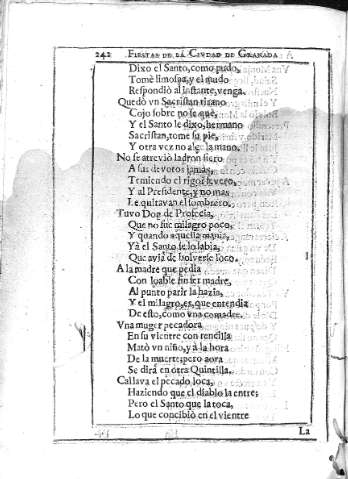 242 FIESTAS DE LA CIVDAD DE GRANADA
Dixo el Santo, como pudo,
Tomè limosna, y el mudo
Respondiò al instante, venga.
Quedò vn Sacristan tirano
Cojo sobre no se què,
Y el Santo le dixo, hermano
Sacristan, tome su pie,
Y otra vez no alce la mano.
No se atreviò ladron fiero
A sus devotos jamàs,
Temiendo el rigor severo,
Y al Presidente, y no mas
Le quitavan el sombrero.
Tuvo Don de Profecia,
Que no fue milagro poco,
Y quando aquella mania,
Yà el Santo se lo sabia,
Que avia de bolverse loco.
A la madre que pedia
Con loable fin ser madre,
Al punto parir la hazia,
Y el milagro es, que entendia
De esto, como vna comadre.
Vna muger pecadora
En su vientre con rencilla
Matò vn niño, y à la hora
De la muerte; pero aora
Se dirà en otra Quintilla.
Callava el pecado loca,
Haziendo que el diablo la entre;
Pero el Santo que la toca,
Lo que concibiò en el vientre
La